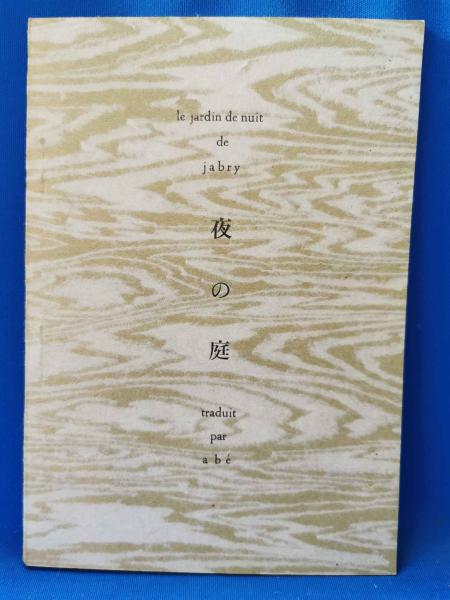 le jardin de nuit
de
jabry
夜の庭
traduit
par
abé